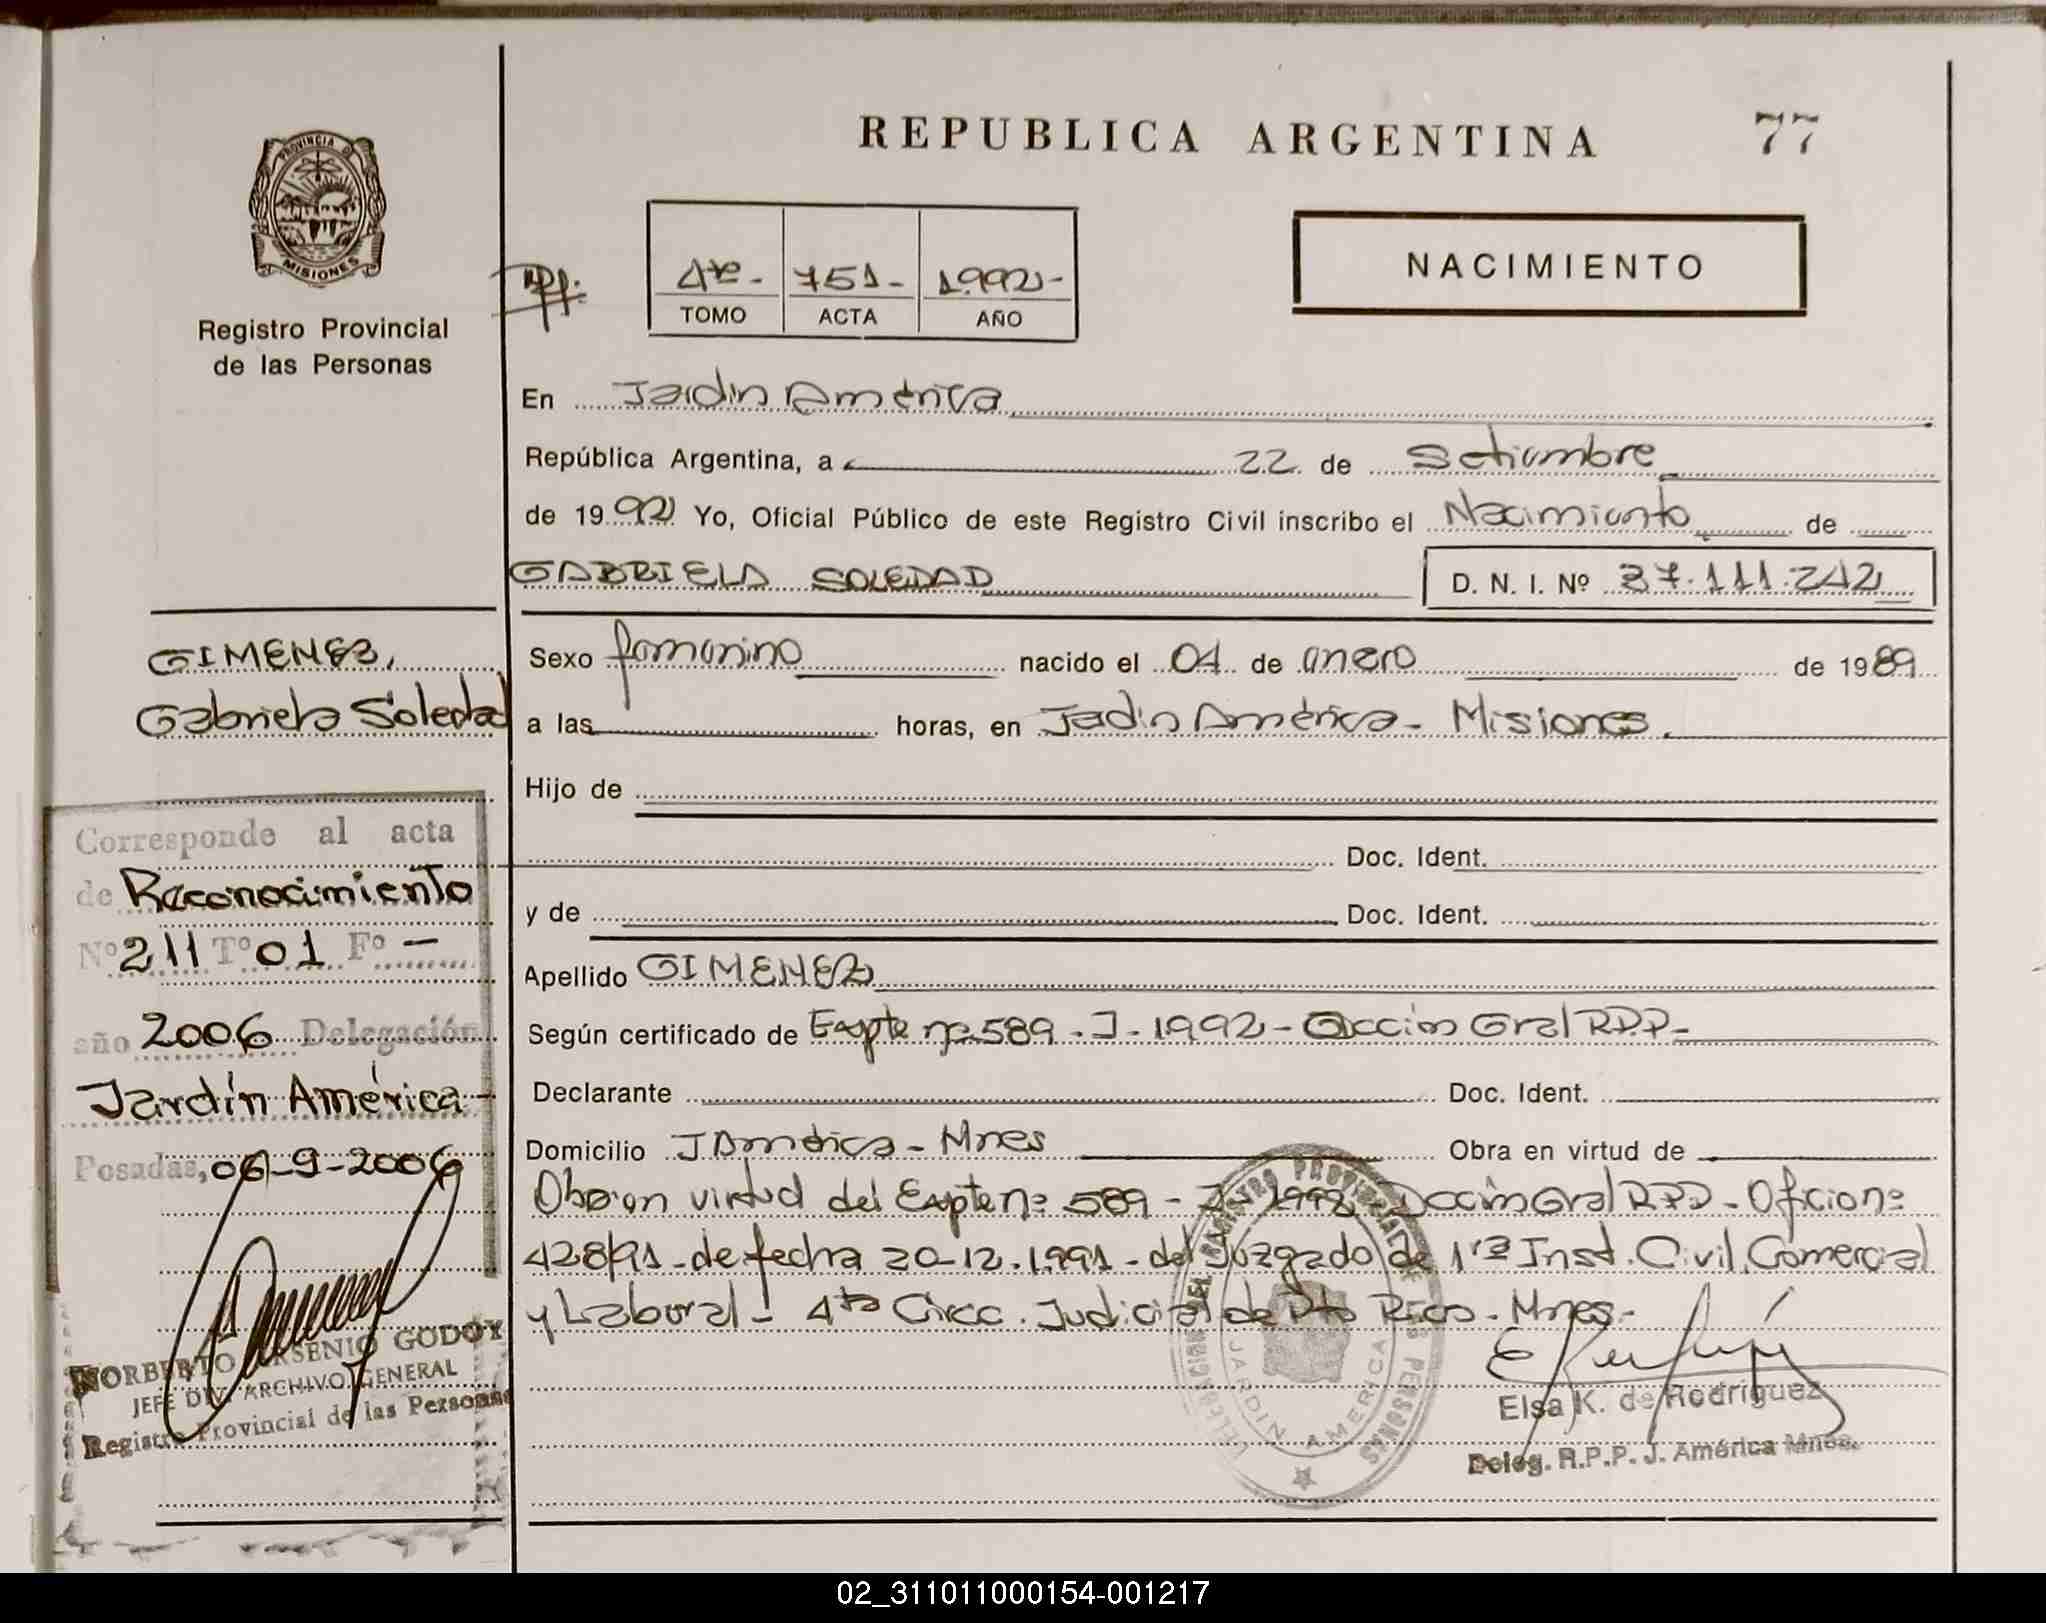 REPUBLICA ARGENTINA
77
PROVINCIA DE
MISIONES
Registro Provincial
de las Personas
4to - 751 - 1992 -
TOMO ACTA AÑO
NACIMIENTO
En Jardin América
República Argentina, a 22 de Setiembre
de 1992 Yo, Oficial Público de este Registro Civil inscribo el Nacimiento de
GABRIELA SOLEDAD D. N. I. Nº 37.111.242
GIMENEZ,
Gabriela Soledad
Sexo femenino nacido el 04 de enero de 1989
a las horas, en Jadin América - Misiones.
Hijo de
Doc. Ident.
y de Doc. Ident.
Apellido GIMENEZ
Según certificado de Expte nº 589 - J - 1992 - Dccion Gral R.P.P -
Declarante Doc. Ident.
Domicilio J América - Mnes Obra en virtud de
Obra en virtud del Expte nº 589 - J - 1992 Dccion Gral RPP - Oficio nº
428/91 - de fecha 20-12-1991 - del Juzgado de 1ra Inst. Civil, Comercial
y Laboral - 4ta Circc. Judicial de Pto Rico - Mnes -
Corresponde al acta
de Reconocimiento
Nº 211 Tº 01 Fº -
año 2006 Delegación
Jardín América -
Posadas, 06-9-2006
NORBERTO ARSENIO GODOY
JEFE DIV. ARCHIVO GENERAL
Registro Provincial de las Personas
DELEGACION DEL REGISTRO PROVINCIAL DE LAS PERSONAS
JARDIN AMERICA
Elsa K. de Rodríguez
Deleg. R.P.P. J. América Mnes.
02_311011000154-001217